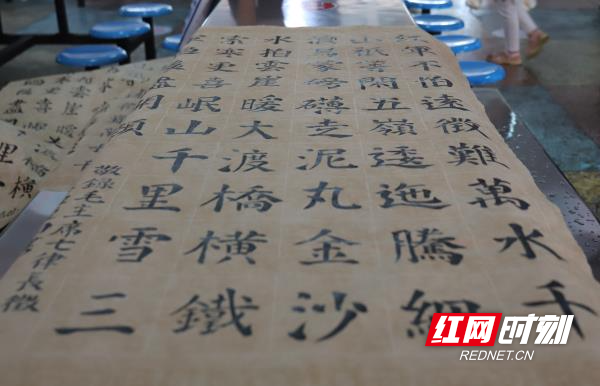 紅軍不怕遠徵難萬水千
山祇等閑五嶺逶迤騰細
浪烏蒙磅礴走泥丸金沙
水拍雲崖暖大渡橋橫鐵
索寒更喜岷山千里雪三
盡開顏
敬錄毛主席七律長徵
里橫
红网时刻
REDNET.CN